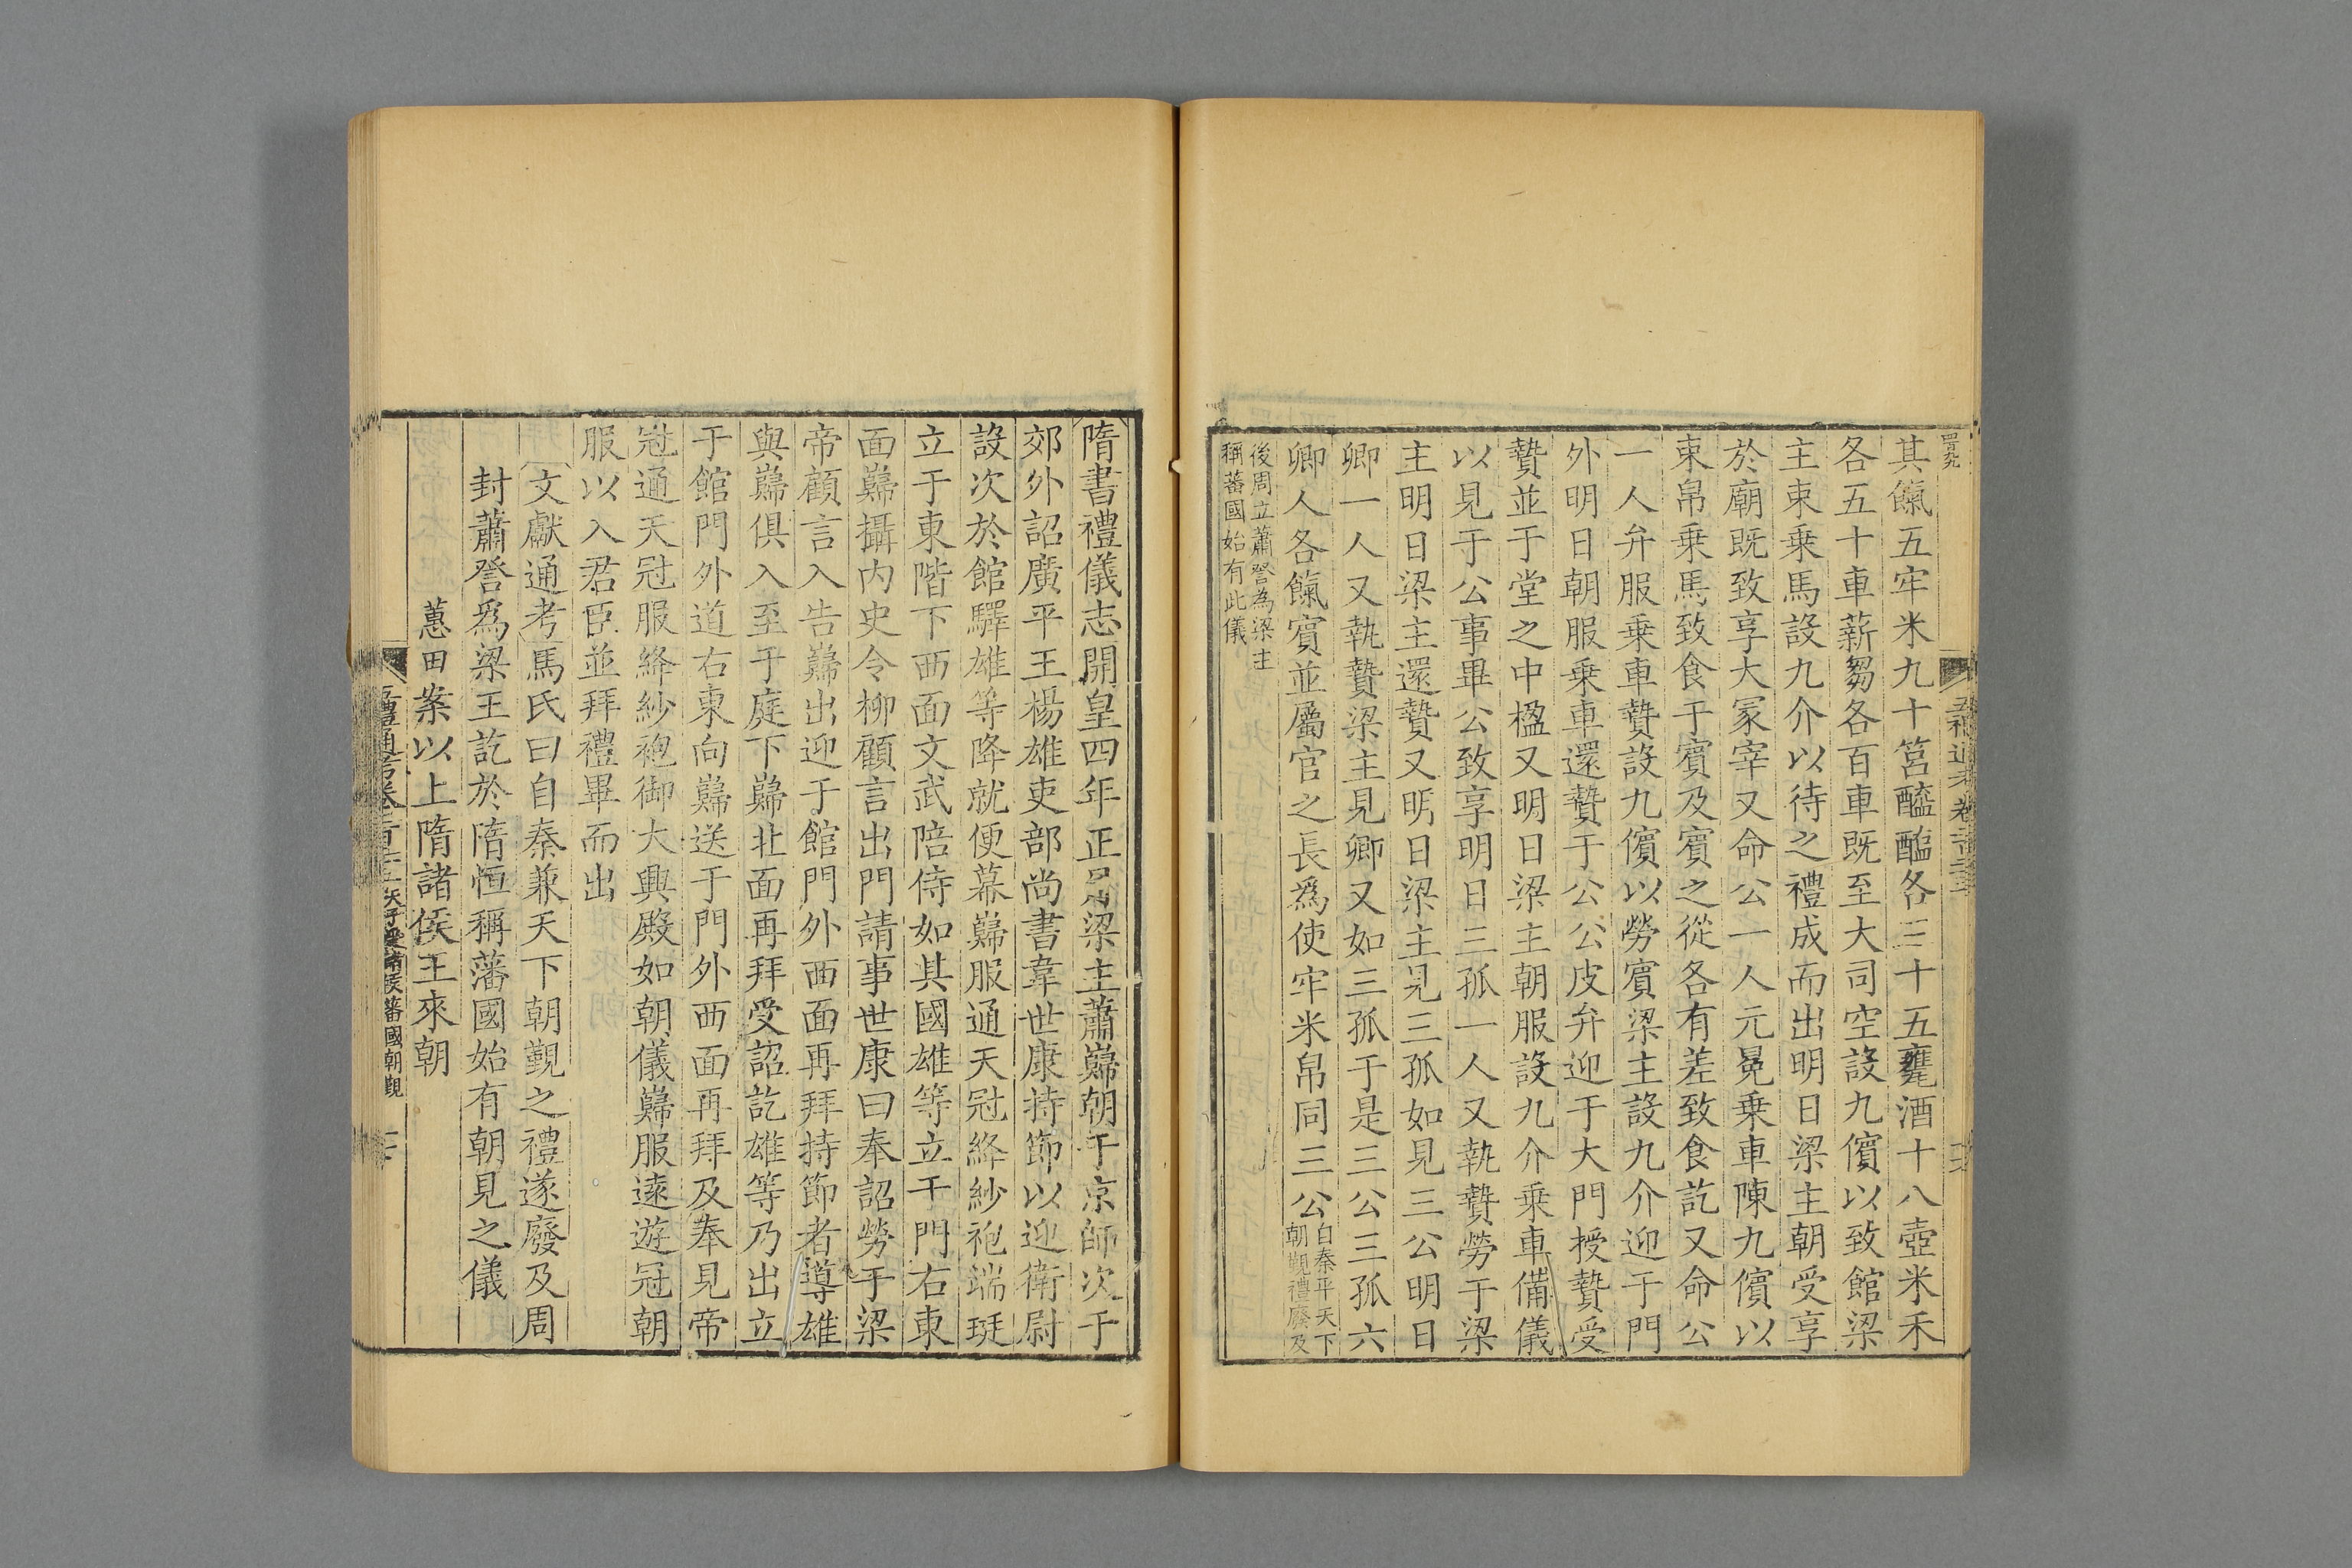 其餼五牢米九十筥醯醢各三十五甕酒十八壺米禾
各五十車薪芻各百車既至大司空設九儐以致館梁
主束乘馬設九介以待之禮成而出明日梁主朝受享
於廟既致享大冢宰又命公一人元冕乘車陳九儐以
束帛乘馬致食于賓及賓之從各有差致食訖又命公
一人弁服乘車贄設九儐以勞賓梁主設九介迎于門
外明日朝服乘車還贄于公公皮弁迎于大門授贄受
贄並于堂之中楹又明日梁主朝服設九介乘車備儀
以見于公事畢公致享明日三孤一人又執贄勞于梁
主明日梁主還贄又明日梁主見三孤如見三公明日
卿一人又執贄梁主見卿又如三孤于是三公三孤六
卿人各餼賓並屬官之長爲使牢米帛同三公自秦平天下朝覲禮廢及
後周立蕭詧為梁主
稱蕃國始有此儀
隋書禮儀志開皇四年正月梁主蕭巋朝于京師次于
郊外詔廣平王楊雄吏部尚書韋世康持節以迎衛尉
設次於館驛雄等降就便幕巋服通天冠絳紗袍端珽
立于東階下西面文武陪侍如其國雄等立于門右東
面巋攝内史令柳顧言出門請事世康曰奉詔勞于梁
帝顧言入告巋出迎于館門外西面再拜持節者導雄
與巋俱入至于庭下巋北面再拜受詔訖雄等乃出立
于館門外道右東向巋送于門外西面再拜及奉見帝
冠通天冠服絳紗袍御大興殿如朝儀巋服遠遊冠朝
服以入君臣並拜禮畢而出
文獻通考馬氏曰自秦兼天下朝覲之禮遂廢及周
封蕭詧爲梁王訖於隋恒稱藩國始有朝見之儀
蕙田案以上隋諸侯王來朝